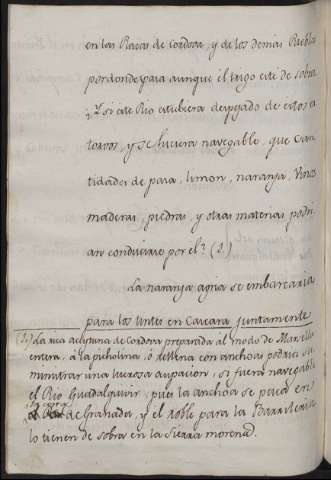 en las Plazas de Cordova, y de los demás Pueblos
por donde pasa aunque el trigo esté de sobra
¿Y si este Rio estubiera despejado de estos es
torvos, y se hiciera navegable, que can
tidades de pasa, limon, naranja, Vinos
maderas, piedras, y otras materias podri
an conducirse por el? (1)
La naranja agria se embarcaria
para los tintes en Cascara juntamente
(1) La rica aceytuna de Cordova preparada al modo de Marsella
entera, a la picholina, ó rellena con anchoas podria su
ministrar una lucrosa ocupacion, si fuera navegable
el Rio Guadalquivir, pues la anchoa se pesca en
la costa
de Granada, y el roble para la Barrileria
lo tienen de sobra en la Sierra morena.